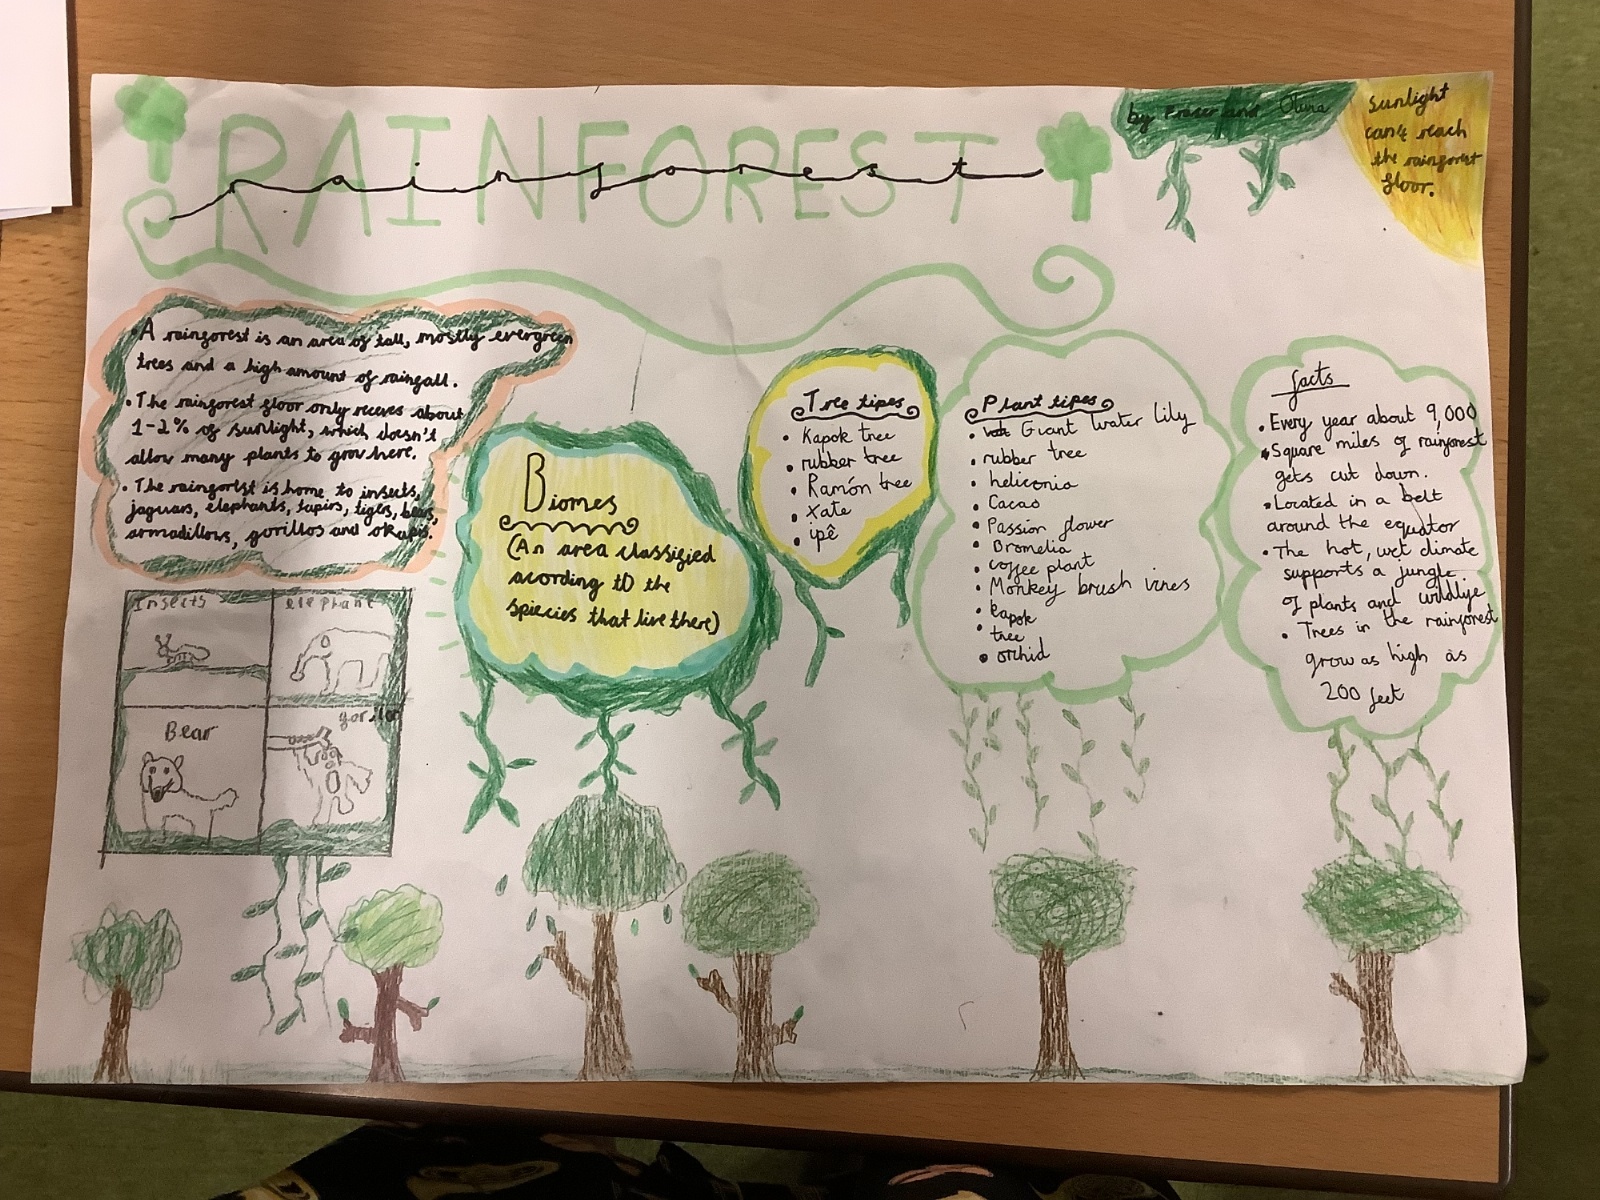 RAINFOREST
rainforest
by Fraser and Olivia
Sunlight
can't reach
the rainforest
floor.
• A rainforest is an area of tall, mostly evergreen
trees and a high amount of rainfall.
• The rainforest floor only receves about
1-2% of sunlight, which doesn't
allow many plants to grow here.
• The rainforest is home to insects,
jaguars, elephants, tapirs, tigers, bears,
armadillows, gorillos and okapis.
Insects
elephant
Bear
gorilla
Biomes
(An area classified
acording to the
spiecies that live there)
Tree tipes
• Kapok tree
• rubber tree
• Ramón tree
• Xate
• ipê
Plant tipes
• Giant Water Lily
• rubber tree
• heliconia
• Cacao
• Passion flower
• Bromelia
• coffee plant
• Monkey brush vines
• kapok
• tree
• orchid
facts
• Every year about 9,000
• Square miles of rainforest
gets cut down.
• Located in a belt
around the equator
• The hot, wet climate
supports a jungle
of plants and wildlife
• Trees in the rainforest
grow as high as
200 feet